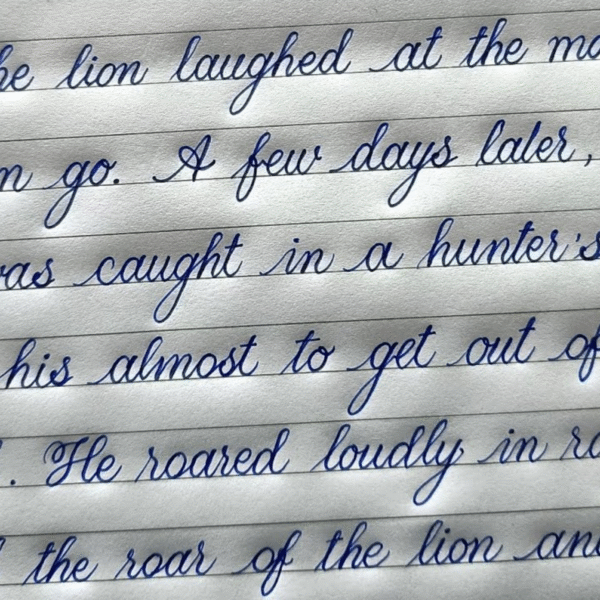 he lion laughed at the mo
n go. A few days later,
was caught in a hunter's
his almost to get out of
. He roared loudly in ra
the roar of the lion and